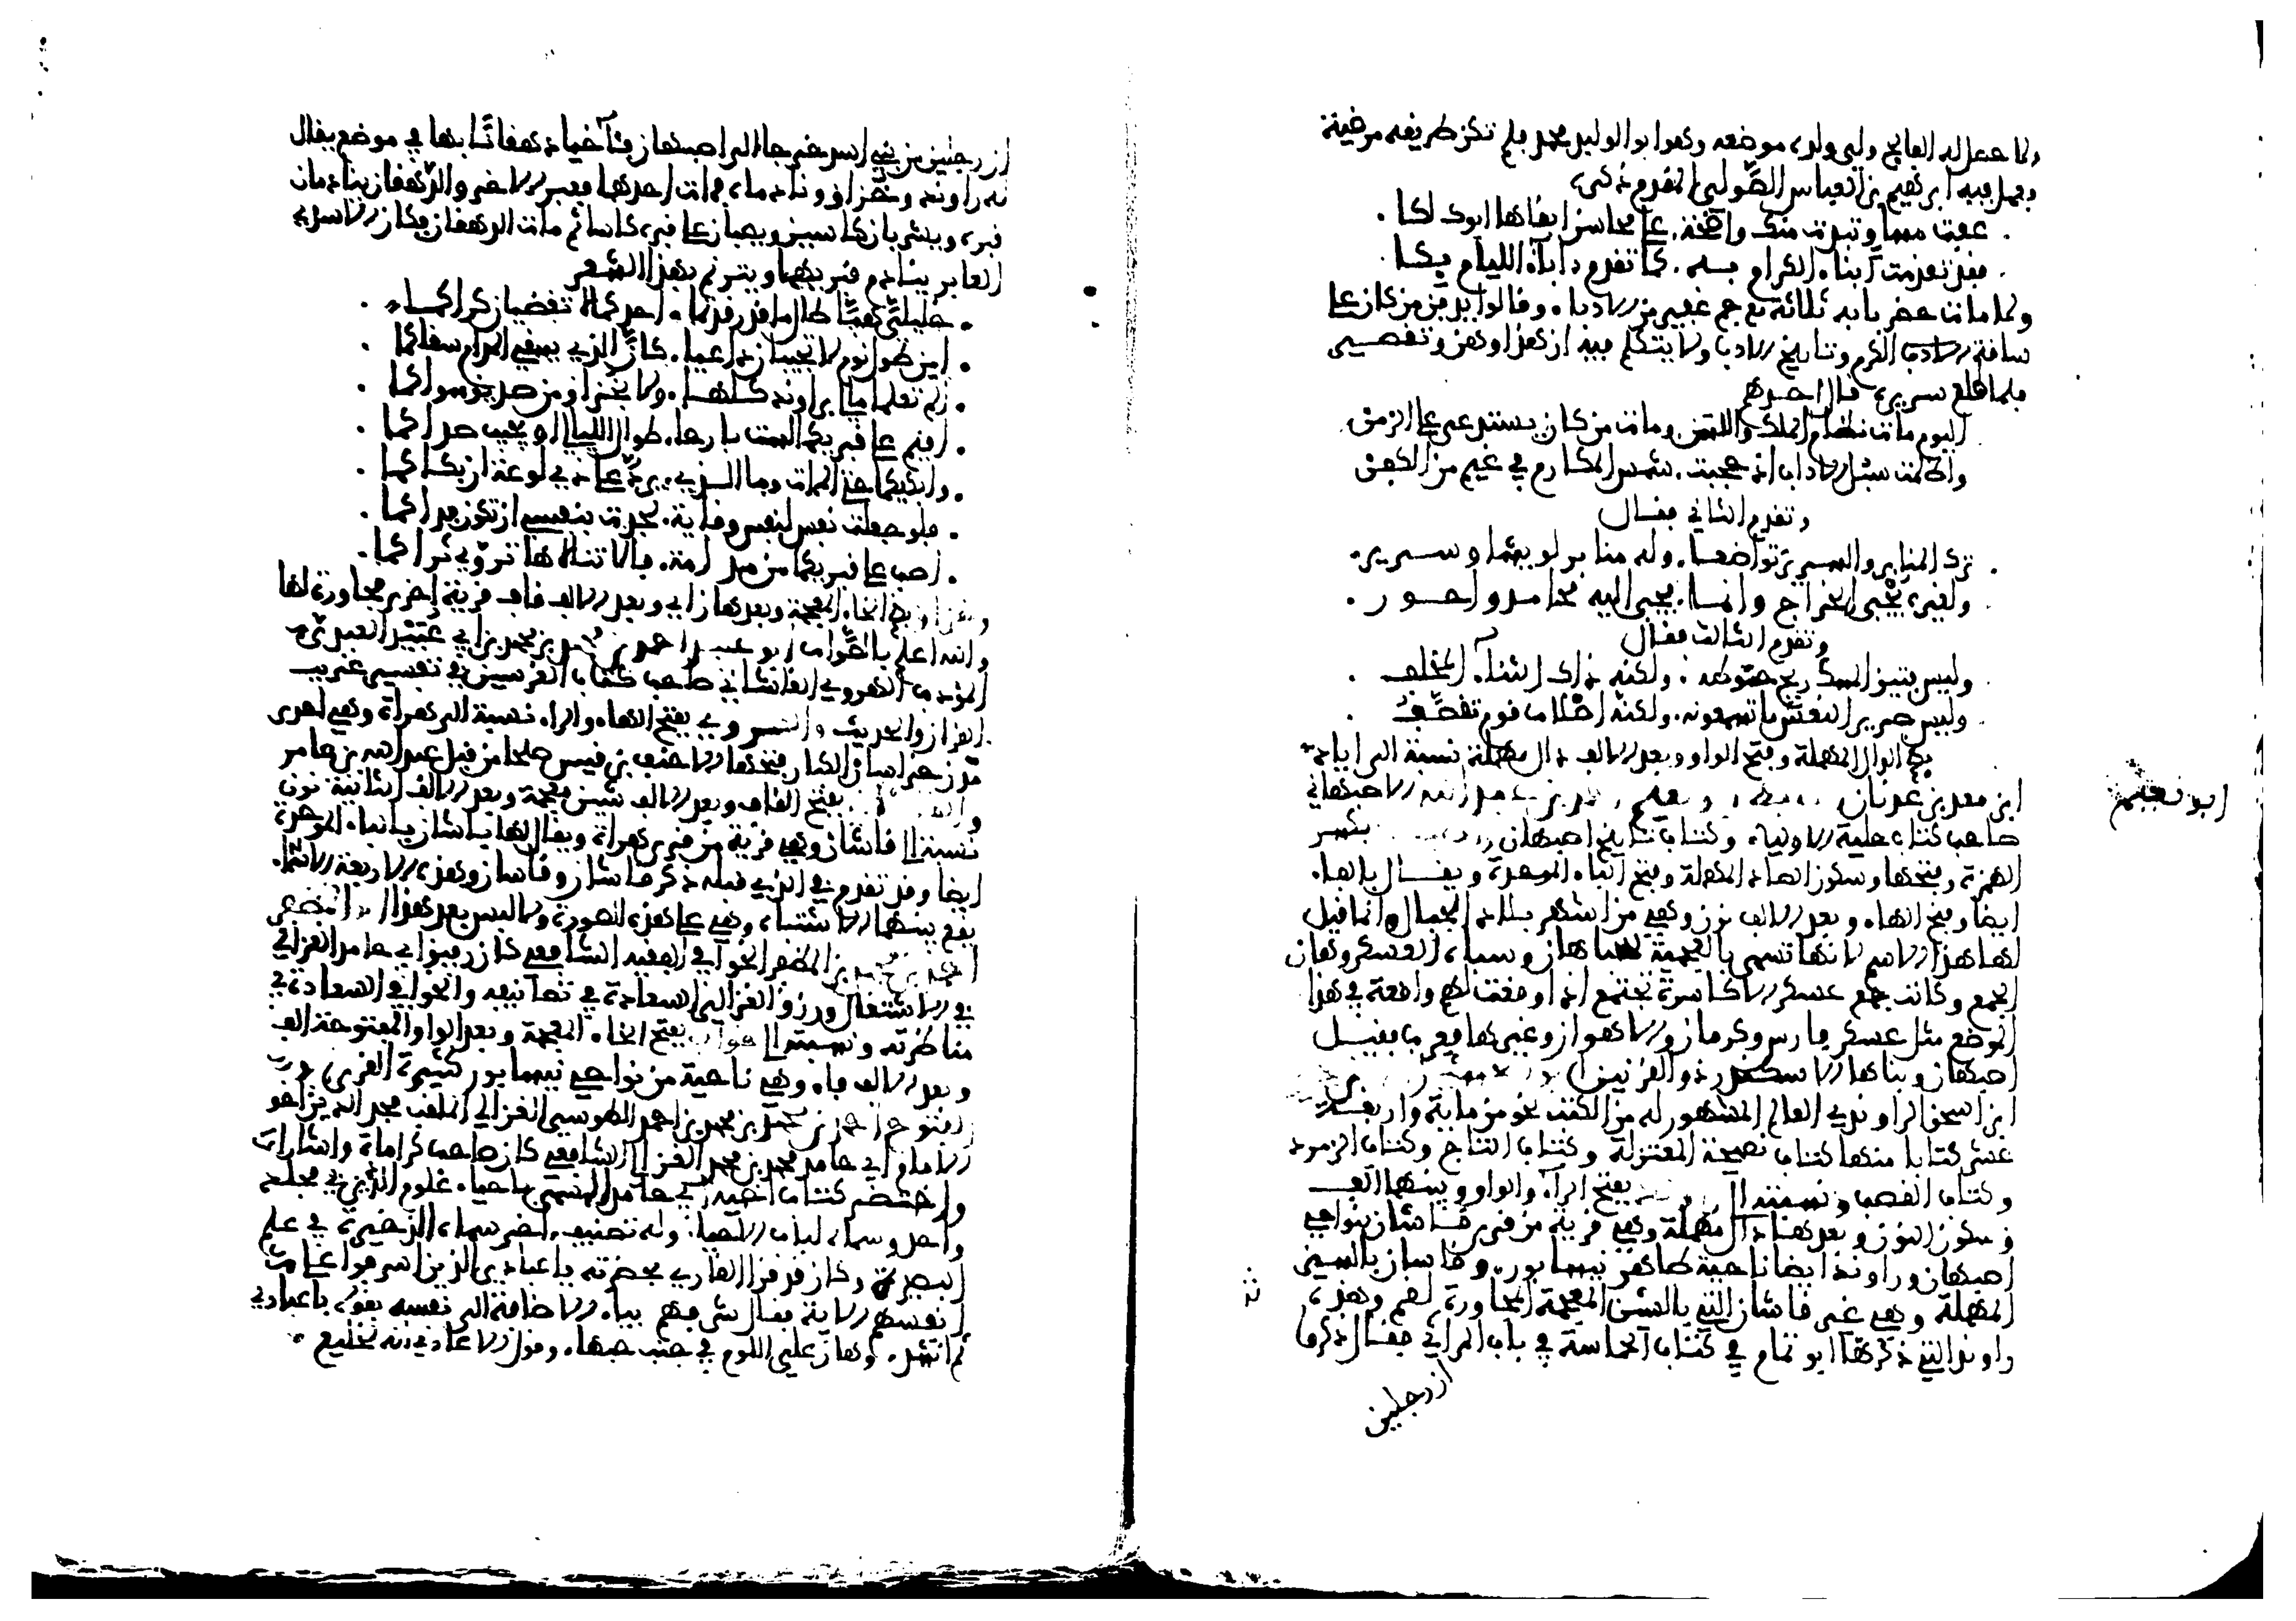 ولما حصل له الفالج ولي ولده موضعه وهو ابو الوليد محمد فلم تكن طريقته مرضية
فعمل فيه ابرهيم بن العباس الصولي المقدم ذكره
عفت مساو تبدت منك واضحة. على محاسن ابقاها ابوك لكا
فقد تقدمت ابناء الكرام به. كما تقدم اباء الليام بكا
ولما مات حضر بابه ثلاثة مع جم غفير من الادباء. وقالوا يدفن من كان على
ساقة الكرم وتاريخ الادب ولا يتكلم فيه ان هذا وهن وتقصير
فلما طلع سريره قال احدهم
اليوم مات نظام الملك واللسن. ومات من كان يستدعى على الزمن
واظلمت سبل الاداب اذ حجبت. شمس المكارم في غيم من الكفن
وتقدم الثاني فقال
ترك المنابر والسرير تواضعا. وله منابر لو يشا وسرير
ولغيره يجبى الخراج وانما. يجبى اليه محامد واجور
وتقدم الثالث فقال
وليس فتيق المسك ريح حنوطه. ولكنه ذاك الثناء المخلف
وليس صرير النعش ما تسمعونه. ولكنه اصلاب قوم تقصف
بضم الدال المهملة وفتح الواو وبعد الالف دال مهملة نسبة الى اياد
ابن معد بن عدنان الحافظ ابو نعيم احمد بن عبد الله الاصبهاني
ابو نعيم
صاحب كتاب حلية الاولياء. وكتاب تاريخ اصبهان بكسر
الهمزة وفتحها وسكون الصاد المهملة وفتح الباء الموحدة ويقال بالفاء
ايضا وفتح الهاء. وبعد الالف نون وهي من اشهر بلاد الجبال وانما قيل
لها هذا الاسم لانها تسمى بالعجمية سباهان وسباه العسكر وهان
الجمع وكانت جمع عسكر الاكاسرة تجتمع اذا وقعت لهم واقعة في هذا
الموضع مثل عسكر فارس وكرمان والاهواز وغيرها فعرب فقيل
اصبهان وبناها الاسكندر ذو القرنين
ابن اسحق الراوندي العالم المشهور له من الكتب نحو من ماية واربعة
عشر كتابا منها كتاب فضيحة المعتزلة وكتاب التاج وكتاب الزمرد
وكتاب القصب ونسبته الى راوند بفتح الراء والواو وبينهما الف
وسكون النون وبعدها دال مهملة وهي قرية من قرى قاسان بنواحي
اصبهان وراوند ايضا ناحية ظاهر نيسابور. وقاسان بالسين
المهملة وهي غير قاشان التي بالشين المعجمة المجاورة لقم وهذه
راوند التي ذكرها ابو تمام في كتاب الحماسة في باب المراثي فقال ذكروا
ان رجلين
ان رجلين من بني اسد خرجا الى اصبهان فتآخيا دهقانا بها في موضع يقال
له راوند وخزاق ونادماه فمات احدهما وغبر الاخر والدهقان ينادمان
قبره ويشربان كاسين ويصبان على قبره كاسا ثم مات الدهقان فكان الاسدي
الغابر ينادم قبريهما ويترنم بهذا الشعر
خليلي هبا طال ما قد رقدتما. اجدكما لا تقضيان كراكما
امن طول نوم لا تجيبان داعيا. كان الذي يسقي المدام سقاكما
الم تعلما مالي براوند كلها. ولا بخزاق من صديق سواكما
اقيم على قبريكما لست بارحا. طوال الليالي او يجيب صداكما
وابكيكما حتى الممات وما الذي. يرد على ذي لوعة ان بكاكما
فلو جعلت نفس لنفس وقاية. لجدت بنفسي ان تكون فداكما
اصب على قبريكما من مدامة. فالا تنالاها تروي ثراكما
وخزاق بضم الخاء المعجمة وبعدها زاي وبعد الالف قاف قرية اخرى مجاورة لها
والله اعلم بالصواب ابو عبيد احمد بن محمد بن محمد بن ابي عبيد العبدي
المؤدب الهروي الفاشاني صاحب كتاب الغريبين في تفسير غريب
القران والحديث والهروي بفتح الهاء والراء نسبة الى هراة وهي احدى
مدن خراسان الكبار فتحها الاحنف بن قيس صلحا من قبل عبد الله بن عامر
بفتح الفاء وبعد الالف شين معجمة وبعد الالف الثانية نون
نسبة الى فاشان وهي قرية من قرى هراة ويقال لها باشان بالباء الموحدة
ايضا وقد تقدم في الذي قبله ذكر قاشان وقاسان وهذه الاربعة الاسماء
يقع بينها الاشتباه وهي على هذه الصورة ولا لبس بعد هذا
احمد بن محمد بن المظفر الخوافي الفقيه الشافعي كان رفيق ابي حامد الغزالي
في الاشتغال ورزق الغزالي السعادة في تصانيفه والخوافي السعادة في
مناظرته ونسبته الى خواف بفتح الخاء المعجمة وبعد الواو المفتوحة الف
وبعد الالف فاء وهي ناحية من نواحي نيسابور كثيرة القرى
ابو الفتوح احمد بن محمد بن محمد بن احمد الطوسي الغزالي الملقب مجد الدين اخو
الامام ابي حامد محمد بن محمد الغزالي الشافعي كان صاحب كرامات واشارات
واختصر كتاب اخيه ابي حامد المسمى باحياء علوم الدين في مجلد
واحد وسماه لباب الاحياء. وله تصنيف اخر سماه الذخيرة في علم
البصيرة وكان قد قرا القاري بحضرته يا عبادي الذين اسرفوا على
انفسهم الاية فقال شرفهم بياء الاضافة الى نفسه بقوله يا عبادي
ثم انشد. وهان علي اللوم في جنب حبها. وقول الاعادي انه لخليع